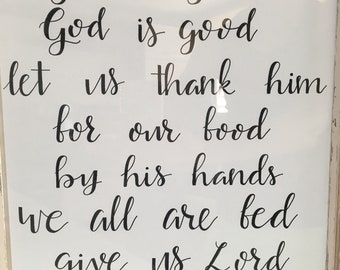 God is good
let us thank him
for our food
by his hands
we all are fed
give us Lord